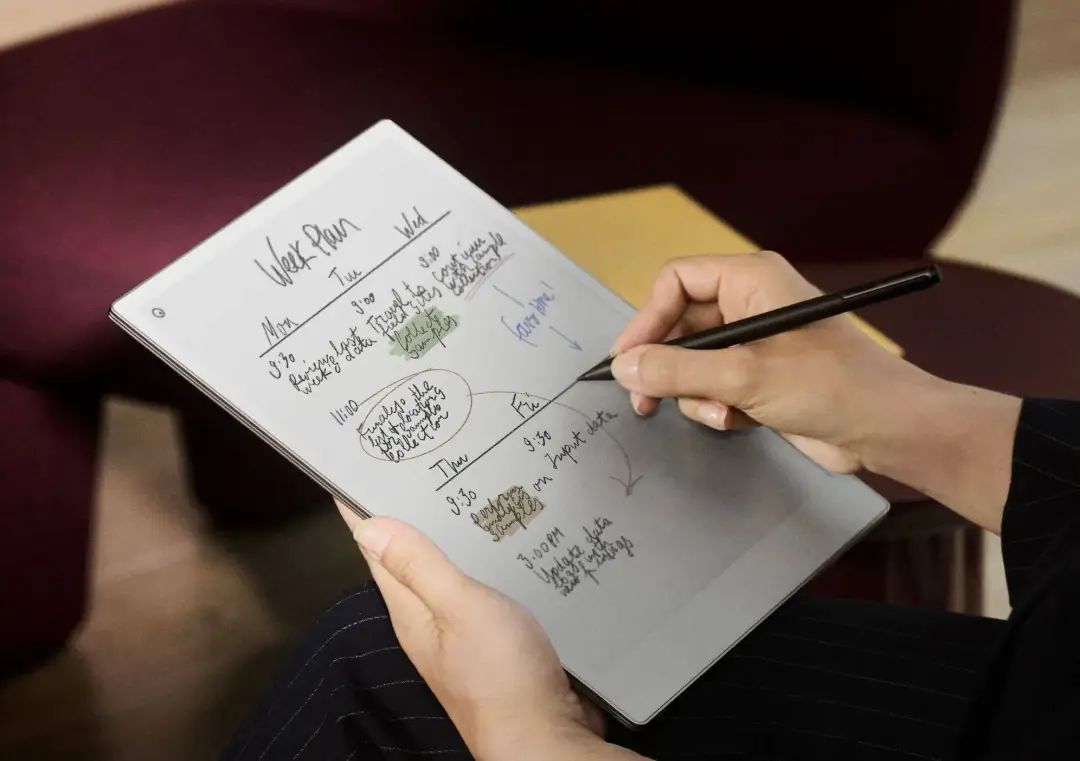 Week Plan
Mon
Tu
Wed
9:30
Review last
week's data
11:00
Finalise the
list of locations
for sample
collection
9:00
Travel to
field sites
Collect
samples
9:00
Continue
with sample
collection
favorite!
Thu
Fri
9:30
Perform
analysis on
samples
3:00PM
Update data
base with
new findings
9:30
Input data